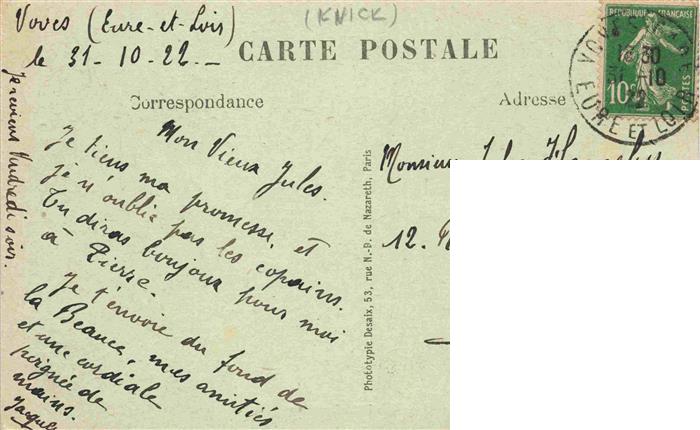 (KNICK)
Voves (Eure-et-Loir)
le 31-10-22._
CARTE POSTALE
RÉPUBLIQUE FRANÇAISE
10c
POSTES
VOVES
18 30
31 10
22
EURE ET LOIR
Correspondance
Adresse
Mon Vieux Jules.
Je tiens ma promesse, et
je n'oublie pas les copains.
Tu diras bonjour pour moi
à Pierre.
Je t'envoie du fond de
la Beauce, mes amitiés
et une cordiale
poignée de
mains.
Jacques
Je reviens Vendredi soir.
Phototypie Desaix, 53, rue N.-D. de Nazareth, Paris
Monsieur Jules
12.